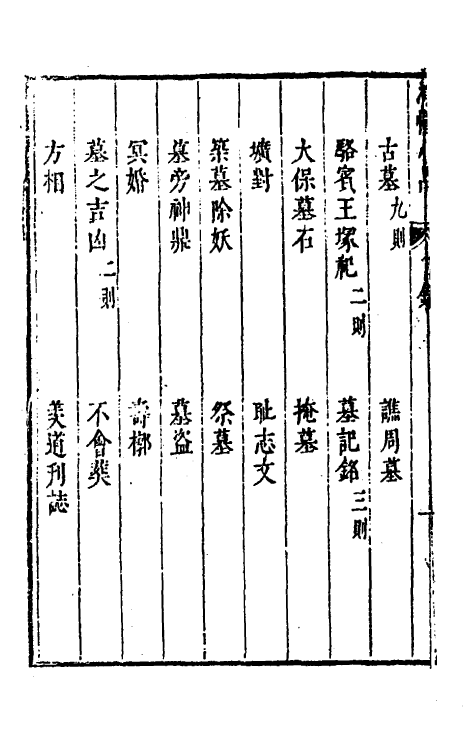 古墓九則　譙周墓
駱賓王塚祀二則　墓記銘三則
大保墓石　掩墓
壙對　耻志文
築墓除妖　祭墓
墓旁神鼎　墓盜
冥婚　壽槨
墓之吉凶二則　不會葬
方相　羙道刋誌